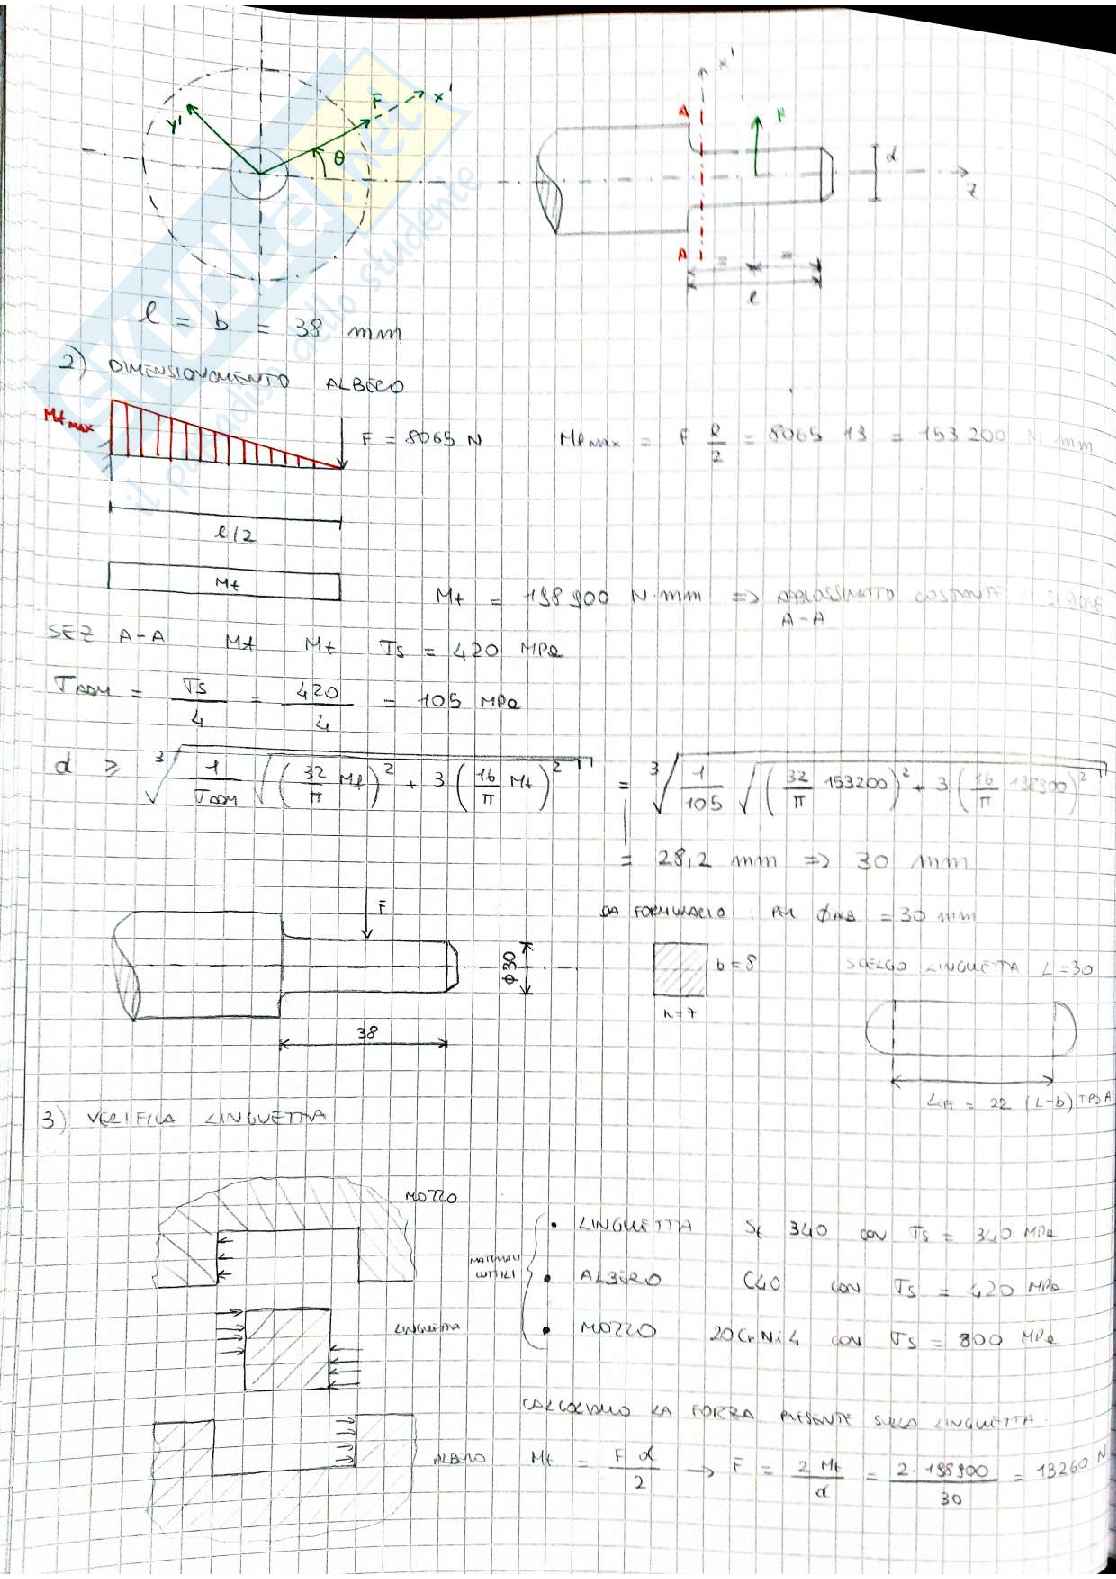 y' F x' θ
x' A F d z
A
l
l = b = 38 mm
2) DIMENSIONAMENTO ALBERO
Mfmax F = 8065 N Mfmax = F l/2 = 8065 · 19 = 153 200 N mm
l/2
Mt
Mt = 198900 N·mm => APPROSSIMATO COSTANTE
A-A
SEZ A-A Mf Mt σs = 420 MPa
σAMM = σs/4 = 420/4 = 105 MPa
d ≥ ∛[1/σAMM √((32/π Mf)² + 3 (16/π Mt)²)] = ∛[1/105 √((32/π 153200)² + 3 (16/π 198900)²)]
= 28,2 mm => 30 mm
F
DA FORMULARIO PER ØALB = 30 mm
ø30
b=8 SCELGO LINGUETTA L=30
h=7
38
= 22 (L-b) TIPO A
3) VERIFICA LINGUETTA
MOZZO
MATERIALI
UTILI
• LINGUETTA St 340 CON σs = 340 MPa
• ALBERO C40 CON σs = 420 MPa
LINGUETTA
• MOZZO 20CrNi4 CON σs = 800 MPa
CALCOLIAMO LA FORZA PRESENTE SULLA LINGUETTA
ALBERO Mt = F d/2 → F = 2 Mt/d = 2 · 198900/30 = 13260 N
SKUOLA.net
il paradiso dello studente